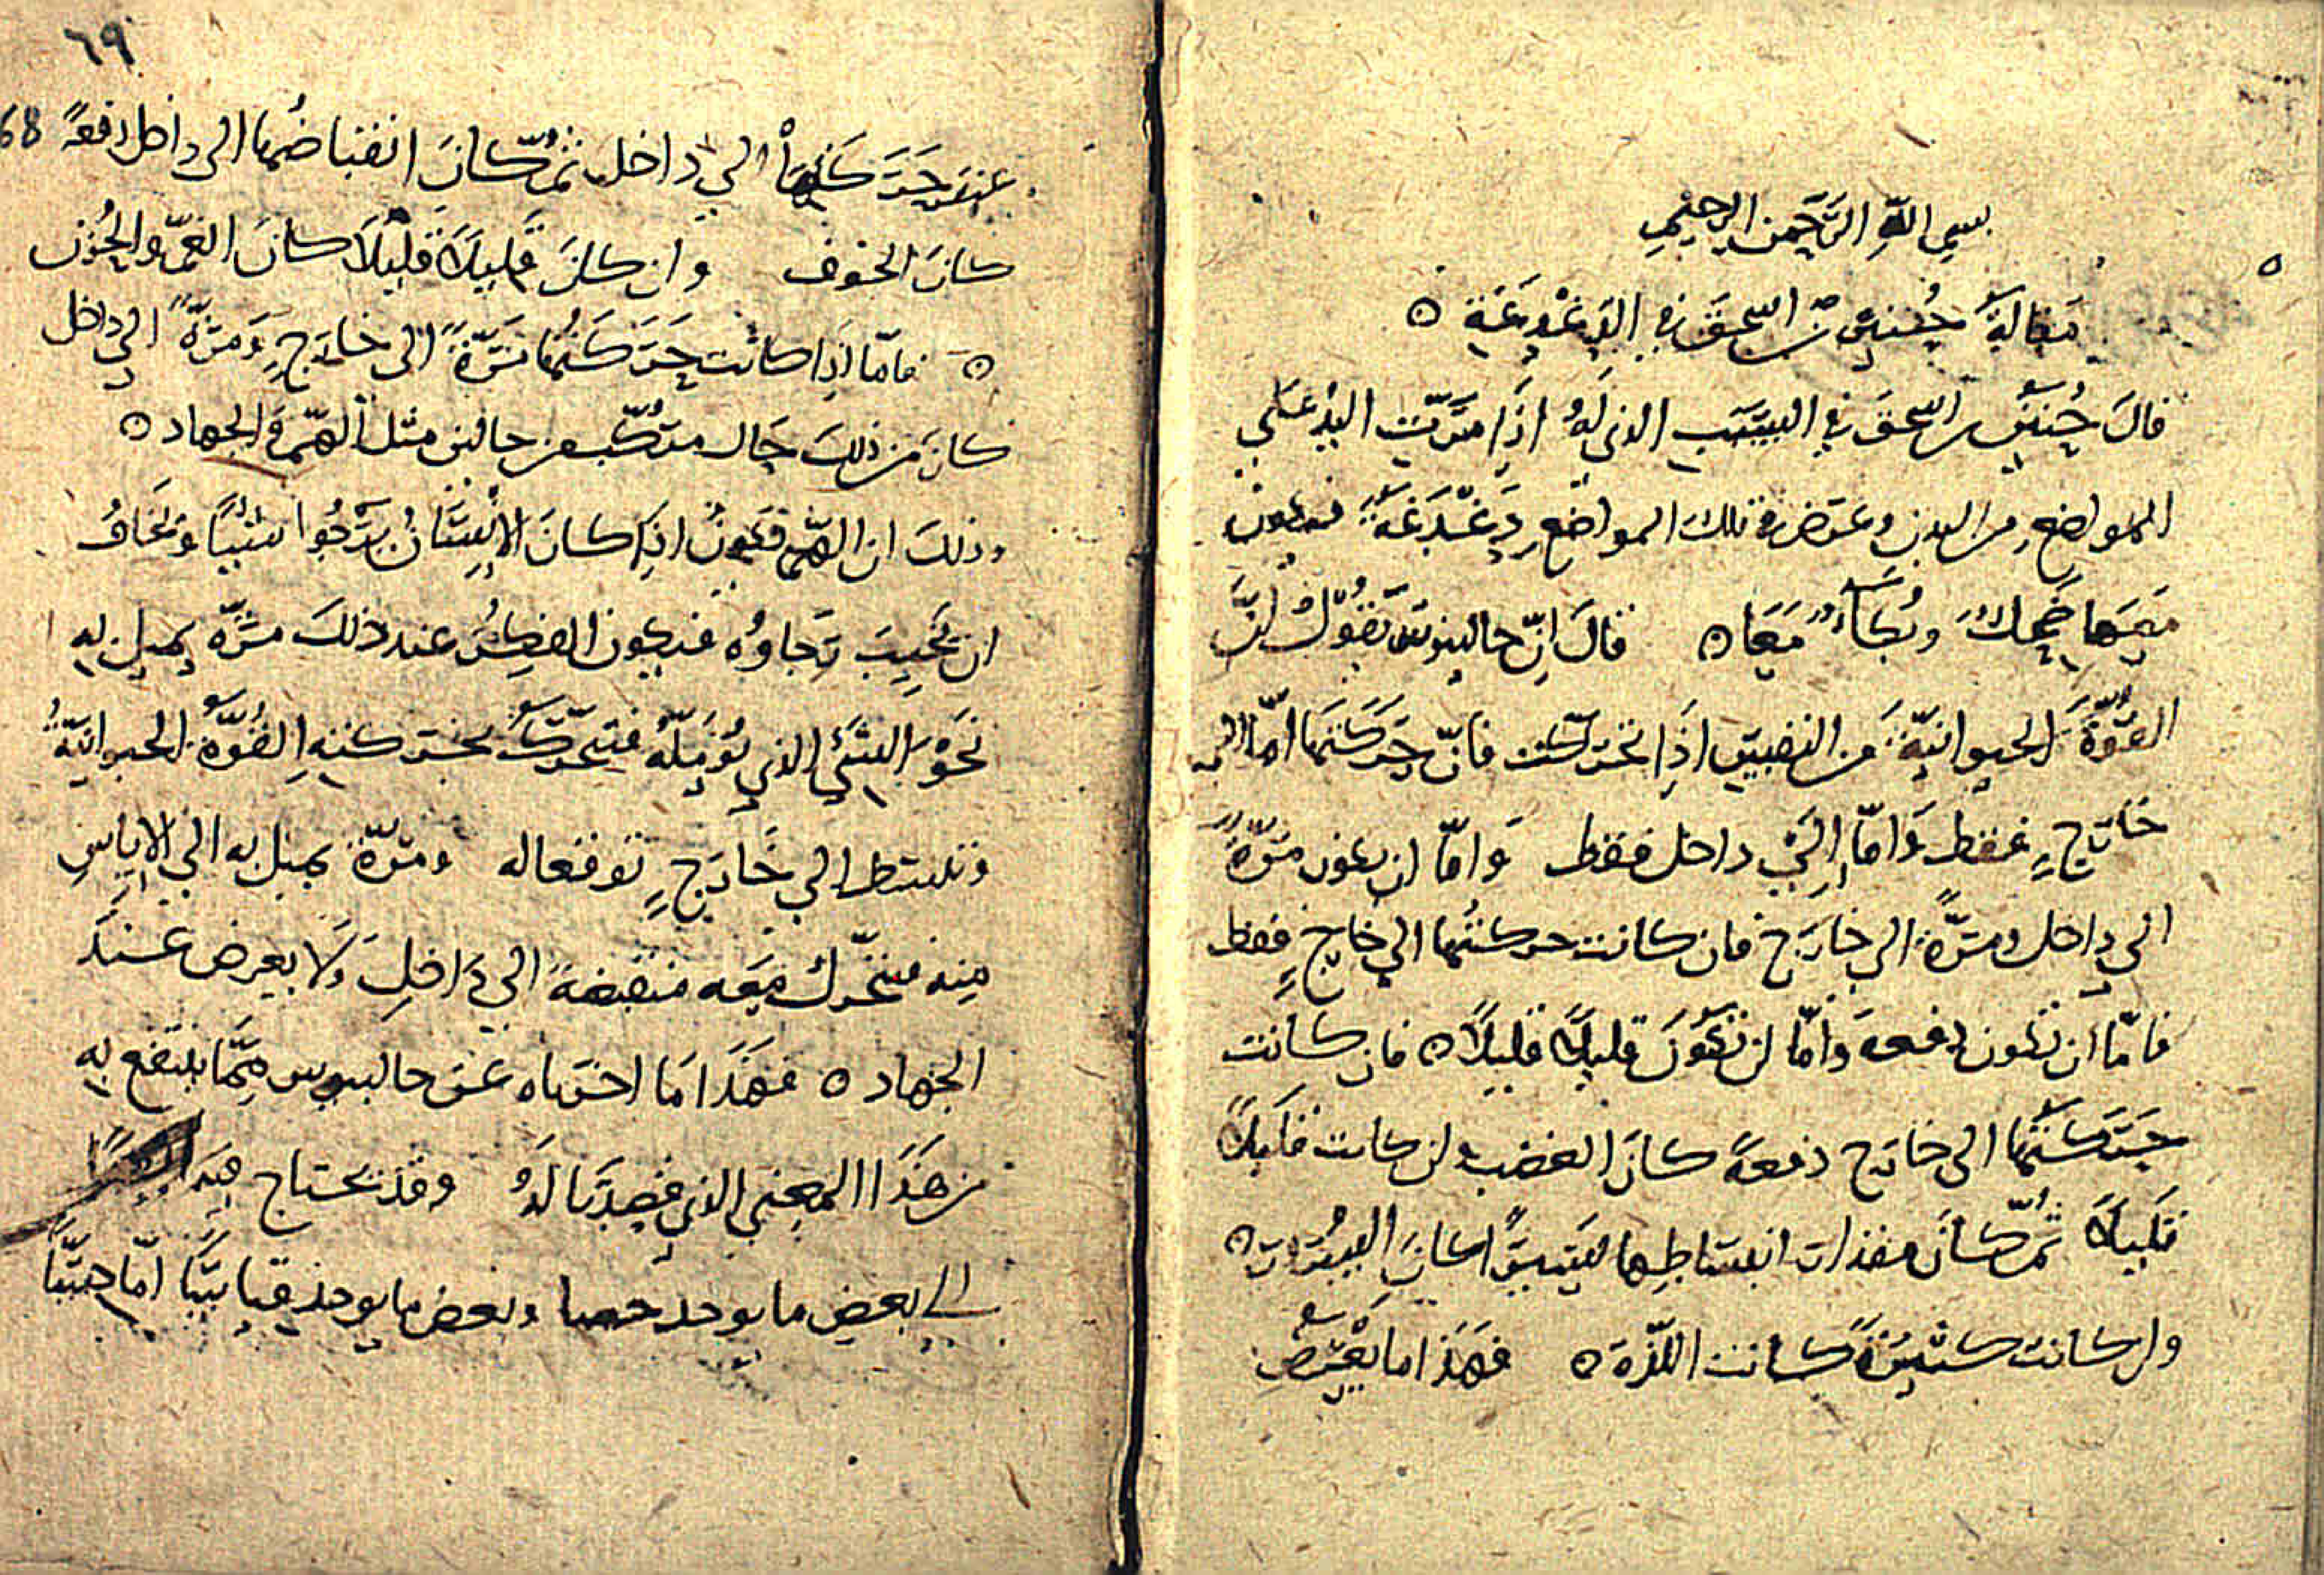 بسم الله الرحمن الرحيم
مقالة حنين بن اسحق في الدغدغة ٥
قال حنين بن اسحق في السبب الذي له اذا مرت اليد على
المواضع من البدن وعرض في تلك المواضع دغدغة فيكون
معها ضحك وبكاء معا ٥ قال ان جالينوس يقول ان
القوة الحيوانية من النفس اذا تحركت فان حركتها اما الى
خارج فقط واما الى داخل فقط واما ان يكون مرة
الى داخل ومرة الى خارج فان كانت حركتها الى خارج فقط
فاما ان تكون دفعة واما ان تكون قليلا قليلا ٥ فان كانت
حركتها الى خارج دفعة كان الغضب وان كانت قليلا
قليلا ثم كان مقدار انبساطها يسيرا كان السرور ٥
وان كانت كثيرة كانت اللذة ٥ فهذا ما يعرض
٦٩
68
عند حركتها الى داخل ثم كان انقباضها الى داخل دفعة
كان الخوف وان كان قليلا قليلا كان الغم والحزن
٥ فاما اذا كانت حركتها مرة الى خارج ومرة الى داخل
كان من ذلك حال مركب من حالين مثل الهم والجهاد ٥
وذلك ان الهم يكون اذا كان الانسان يرجوا شيئا ويخاف
ان يخيب رجاوه فيكون الفكر عند ذلك مرة يميل به
نحو الشيء الذي يؤمله فتتحرك بحركته القوة الحيوانية
وتنبسط الى خارج توقعا له ومرة يميل به الى الاياس
منه فتتحرك معه منقبضة الى داخل ولا يعرض عند
الجهاد ٥ فهذا ما اخذناه عن جالينوس مما ينتفع به
من هذا المعنى الذي قصدنا له وقد نحتاج فيه
الى بعض ما يوجد حسا وبعض ما يوجد قياسا اما حسا